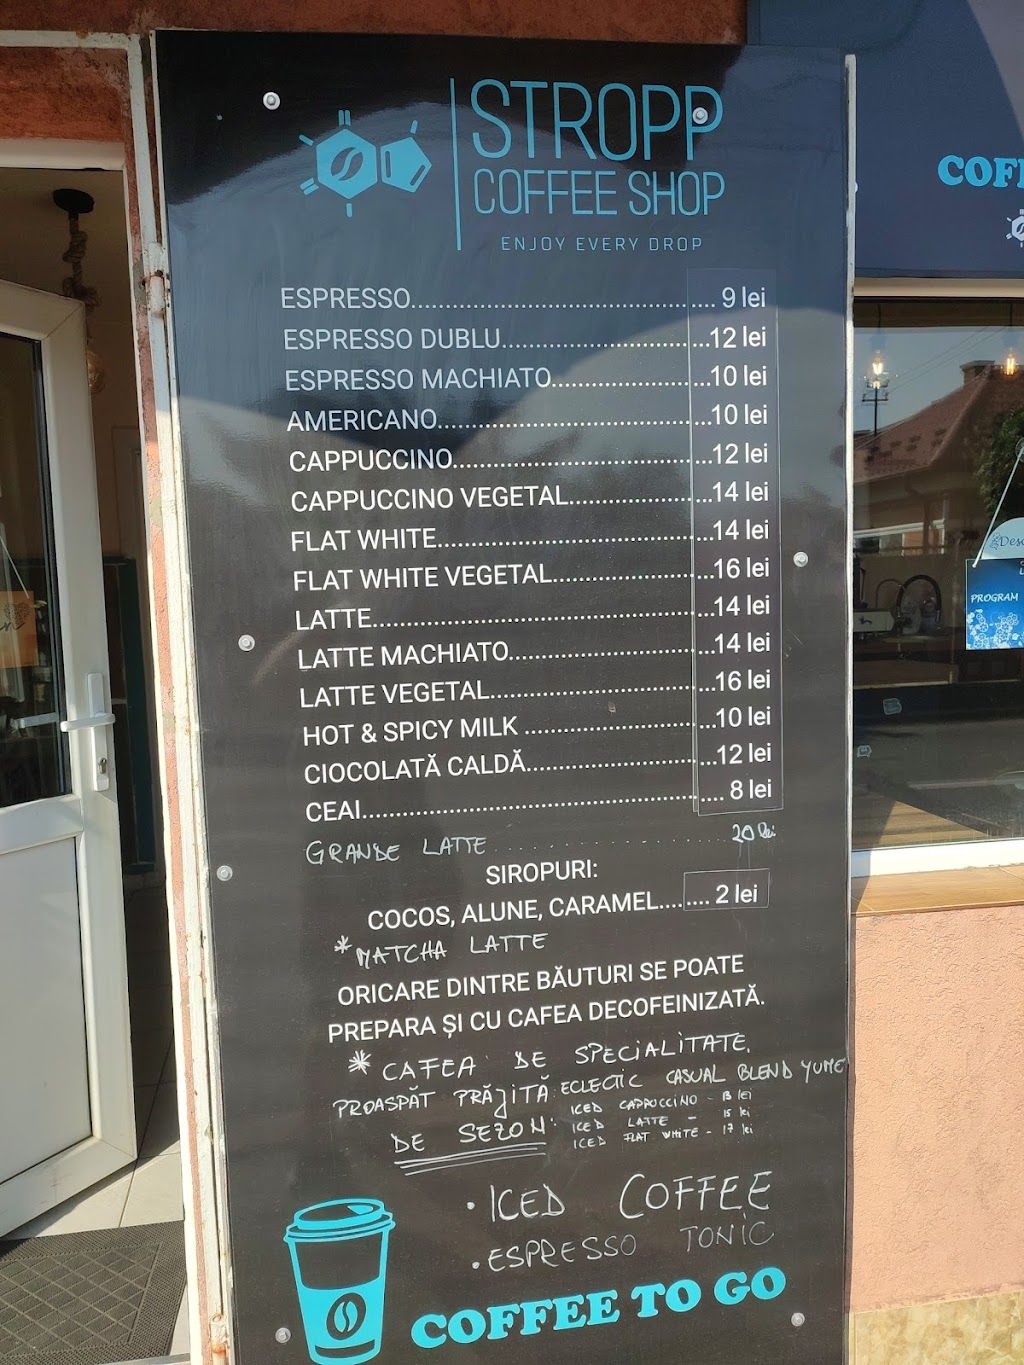 STROPP
COFFEE SHOP
ENJOY EVERY DROP
ESPRESSO.................................................. 9 lei
ESPRESSO DUBLU...............................12 lei
ESPRESSO MACHIATO.......................10 lei
AMERICANO........................................10 lei
CAPPUCCINO......................................12 lei
CAPPUCCINO VEGETAL.....................14 lei
FLAT WHITE.........................................14 lei
FLAT WHITE VEGETAL.......................16 lei
LATTE...................................................14 lei
LATTE MACHIATO..............................14 lei
LATTE VEGETAL.................................16 lei
HOT & SPICY MILK ............................10 lei
CIOCOLATĂ CALDĂ............................12 lei
CEAI...................................................... 8 lei
GRANDE LATTE .................. 20 lei
SIROPURI:
COCOS, ALUNE, CARAMEL......... 2 lei
* MATCHA LATTE
ORICARE DINTRE BĂUTURI SE POATE
PREPARA ȘI CU CAFEA DECOFEINIZATĂ.
* CAFEA DE SPECIALITATE,
PROASPĂT PRĂJITĂ: ECLECTIC CASUAL BLEND YUME
DE SEZON: ICED CAPPUCCINO - 13 lei
ICED LATTE - 15 lei
ICED FLAT WHITE - 17 lei
• ICED COFFEE
• ESPRESSO TONIC
COFFEE TO GO
PROGRAM